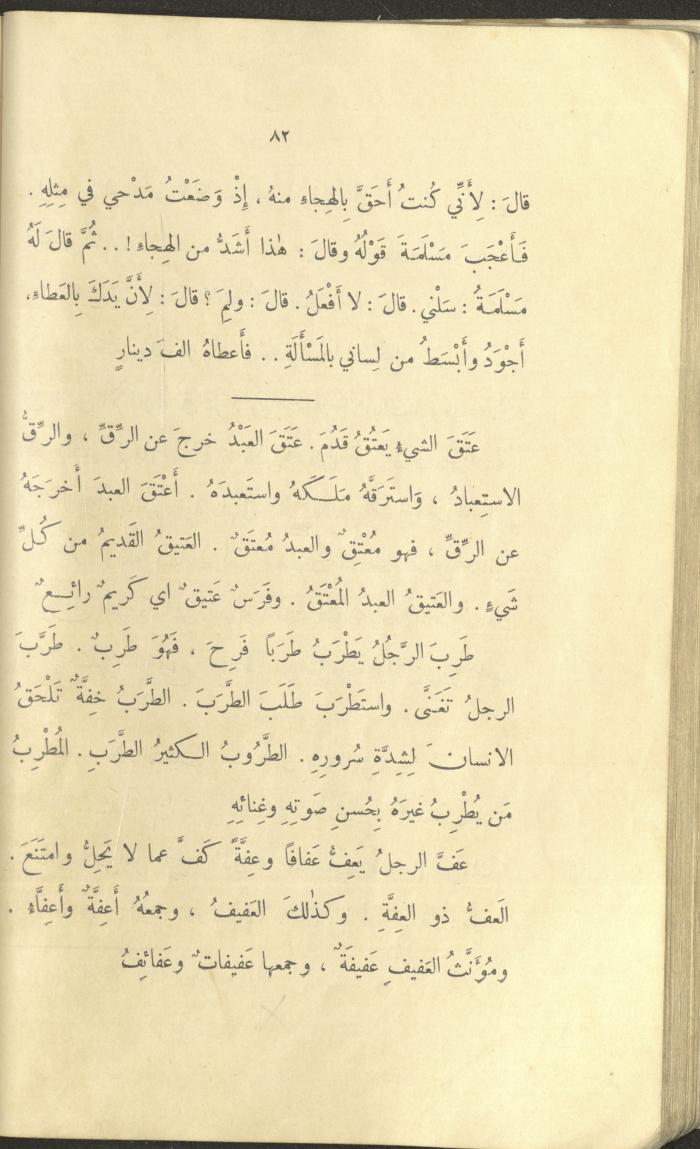 ٨٢
قالَ : لِأَنِّي كُنتُ أَحَقَّ بِالهِجاءِ منهُ ، إِذْ وَضَعْتُ مَدْحي في مِثلِهِ .
فَأَعْجَبَ مَسْلَمَةَ قَوْلُهُ وقالَ : هٰذا أَشَدُّ من الهِجاءِ ! . . ثُمَّ قالَ لَهُ
مَسْلَمَةُ : سَلْني . قالَ : لا أَفْعَلُ . قالَ : ولِمَ ؟ قالَ : لِأَنَّ يَدَكَ بِالعَطاءِ ،
أَجْوَدُ وأَبْسَطُ من لِساني بالمَسْأَلَةِ . . فأَعطاهُ الفَ دينارٍ
عَتَقَ الشيءُ يَعتُقُ قَدُمَ . عَتَقَ العَبْدُ خرجَ عن الرِّقِّ ، والرِّقُّ
الاستِعبادُ ، وَاستَرَقَّهُ مَلَكَهُ واستَعبدَهُ . أَعْتَقَ العبدَ أَخرَجَهُ
عن الرِّقِّ ، فهو مُعْتِقٌ والعبدُ مُعتَقٌ . العَتيقُ القَديمُ من كُلِّ
شَيءٍ . والعَتيقُ العبدُ المُعْتَقُ . وفَرَسٌ عَتيقٌ اي كَريمٌ رائِعٌ
طَرِبَ الرَّجُلُ يَطْرَبُ طَرَباً فَرِحَ ، فَهُوَ طَرِبٌ . طَرَّبَ
الرجلُ تَغَنَّى . واستَطْرَبَ طَلَبَ الطَّرَبَ . الطَّرَبُ خِفَّةٌ تَلْحَقُ
الانسانَ لِشِدَّةِ سُرورِهِ . الطَّرُوبُ الكثيرُ الطَّرَبِ . المُطْرِبُ
مَن يُطْرِبُ غيرَهُ بِحُسنِ صَوتِهِ وغِنائِهِ
عَفَّ الرجلُ يَعِفُّ عَفافًا وعِفَّةً كَفَّ عما لا يَحِلُّ وامتَنَعَ .
العَفُّ ذو العِفَّةِ . وكذٰلكَ العَفيفُ ، وجمعُهُ أَعِفَّةٌ وأَعِفَّاءُ .
ومُؤَنَّثُ العَفيفِ عَفيفَةٌ ، وجمعها عَفيفاتٌ وعَفائِفُ